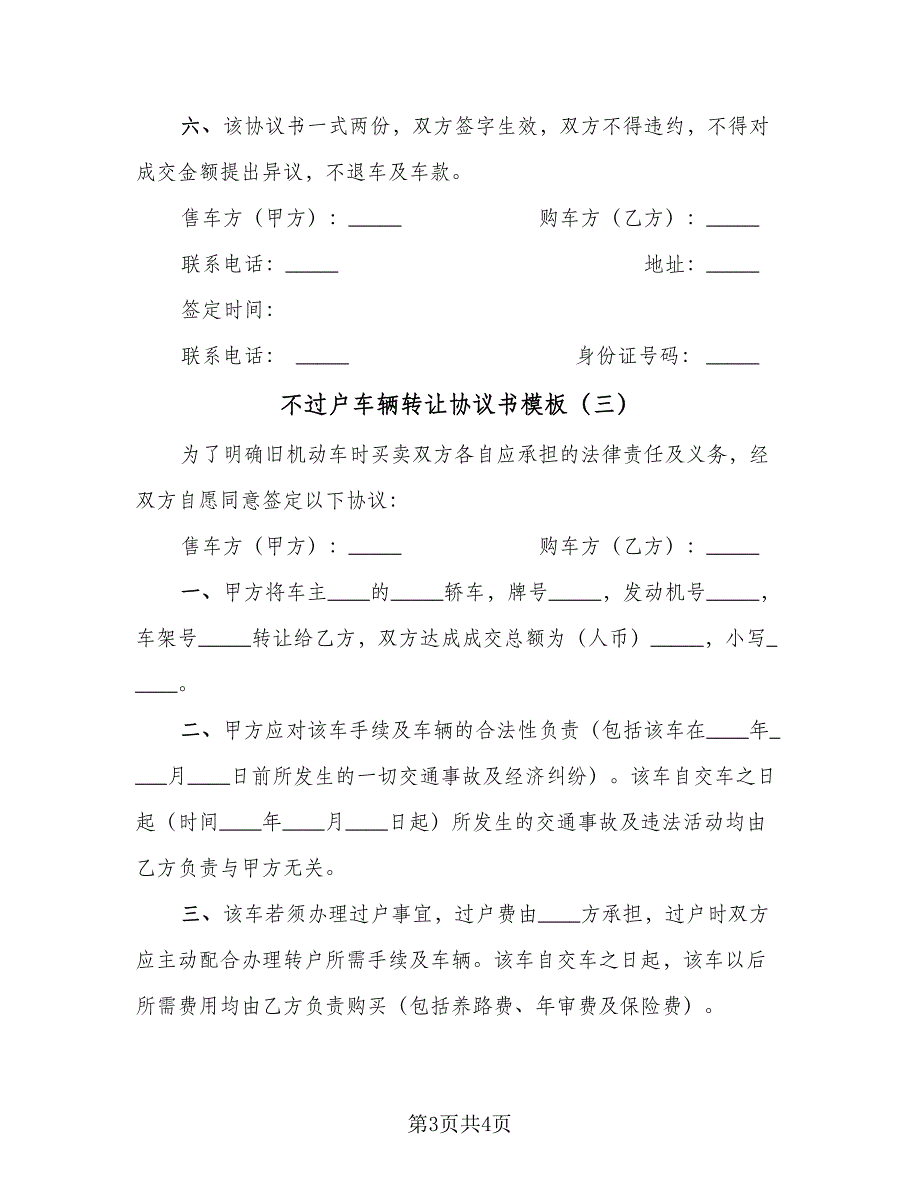 六、该协议书一式两份，双方签字生效，双方不得违约，不得对
成交金额提出异议，不退车及车款。
售车方（甲方）：_____ 购车方（乙方）：_____
联系电话：_____ 地址：_____
签定时间：
联系电话： _____ 身份证号码： _____
不过户车辆转让协议书模板（三）
为了明确旧机动车时买卖双方各自应承担的法律责任及义务，经
双方自愿同意签定以下协议：
售车方（甲方）：_____ 购车方（乙方）：_____
一、甲方将车主____的_____轿车，牌号_____，发动机号_____，
车架号_____转让给乙方，双方达成成交总额为（人币）_____，小写_
____。
二、甲方应对该车手续及车辆的合法性负责（包括该车在____年_
___月____日前所发生的一切交通事故及经济纠纷）。该车自交车之日
起（时间____年____月____日起）所发生的交通事故及违法活动均由
乙方负责与甲方无关。
三、该车若须办理过户事宜，过户费由____方承担，过户时双方
应主动配合办理转户所需手续及车辆。该车自交车之日起，该车以后
所需费用均由乙方负责购买（包括养路费、年审费及保险费）。
第3页共4页